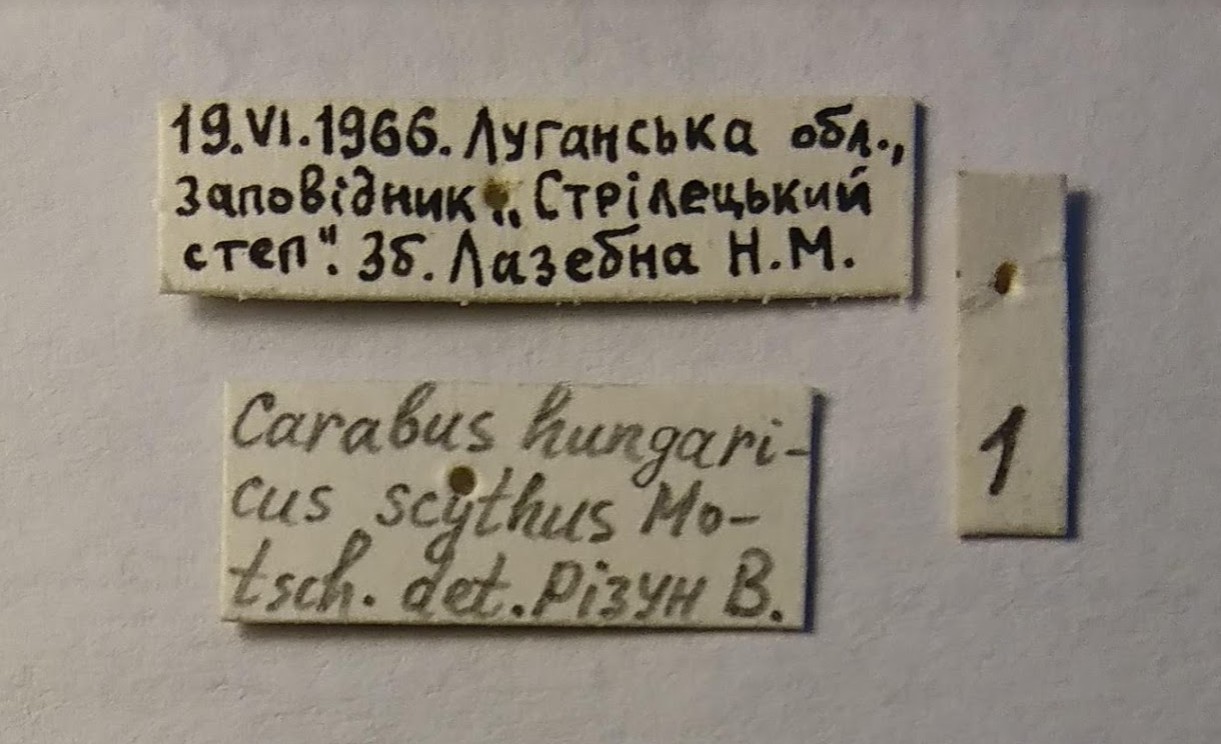 19.VI.1966. Луганська обл.,
Заповідник „Стрілецький
степ". Зб. Лазебна Н.М.
Carabus hungari-
cus scythus Mo-
tsch. det. Різун В.
1